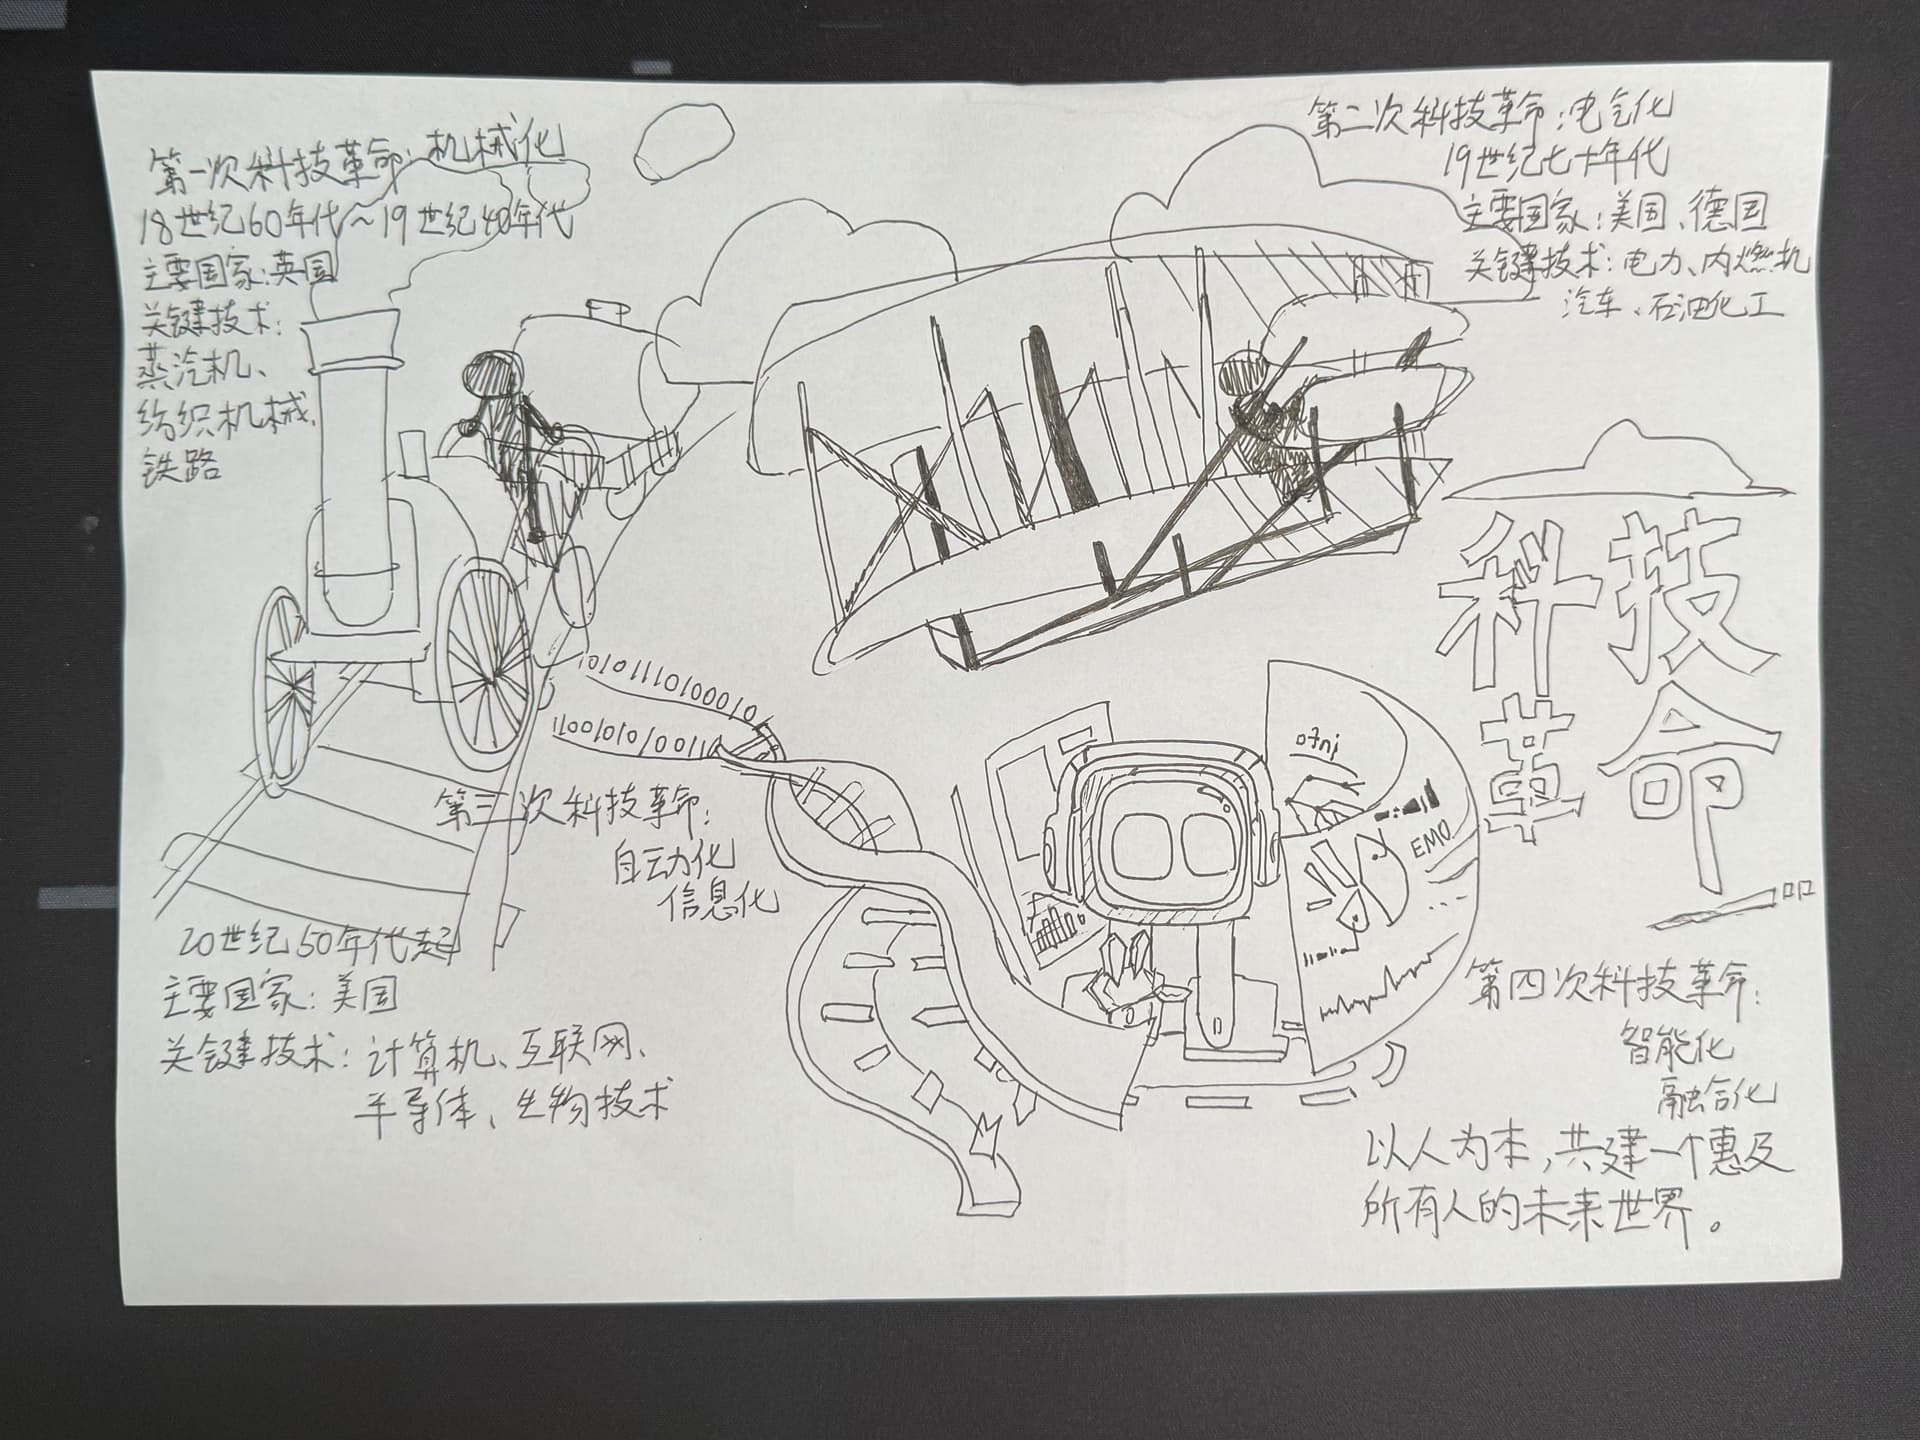 第一次科技革命：机械化
18世纪60年代～19世纪40年代
主要国家：英国
关键技术：
蒸汽机、
纺织机械、
铁路
第二次科技革命：电气化
19世纪七十年代
主要国家：美国、德国
关键技术：电力、内燃机
汽车、石油化工
科技
革命
第三次科技革命：
自动化
信息化
20世纪50年代起
主要国家：美国
关键技术：计算机、互联网、
半导体、生物技术
EMO
第四次科技革命：
智能化
融合化
以人为本，共建一个惠及
所有人的未来世界。